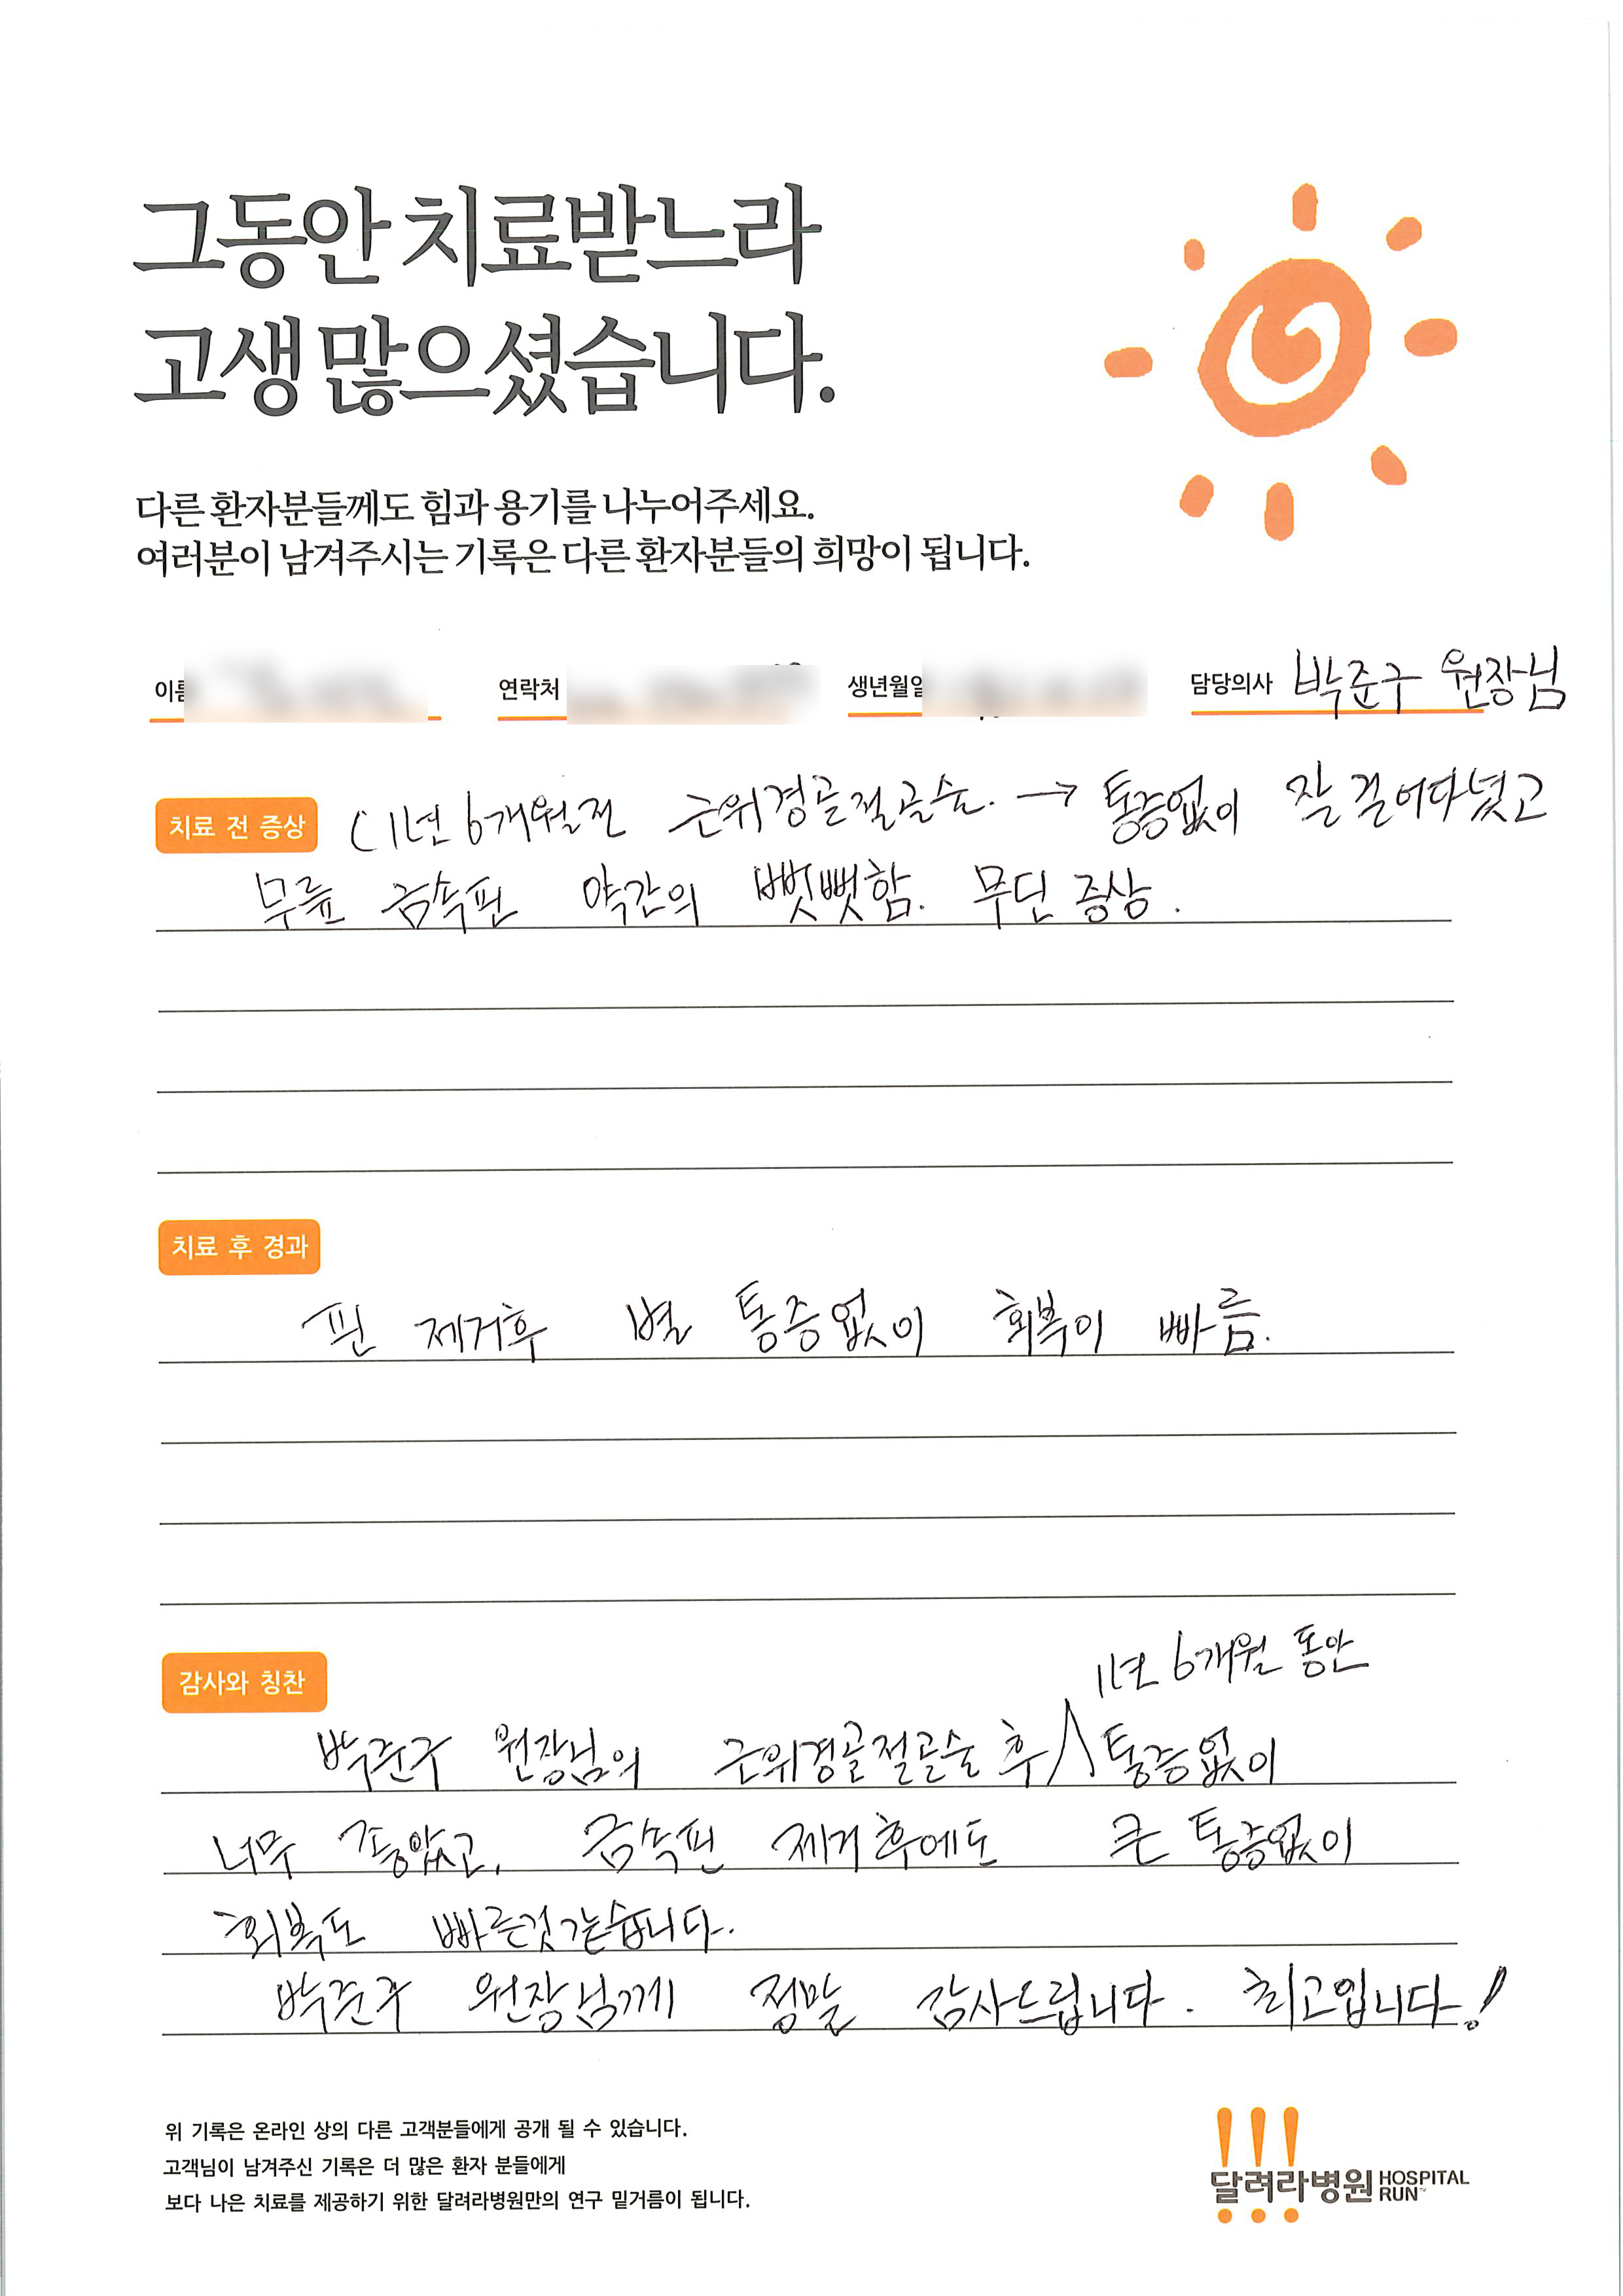 그동안 치료받느라
고생 많으셨습니다.
다른 환자분들께도 힘과 용기를 나누어주세요.
여러분이 남겨주시는 기록은 다른 환자분들의 희망이 됩니다.
이름 연락처 생년월일 담당의사 박준구 원장님
치료 전 증상 ( 1년 6개월전 근위경골절골술. → 통증없이 잘 걸어다녔고
무릎 금속핀 약간의 뻣뻣함. 무딘 증상.
치료 후 경과
핀 제거후 별 통증없이 회복이 빠름.
감사와 칭찬
1년 6개월 동안
박준구 원장님의 근위경골절골술 후 통증없이
너무 좋았고, 금속핀 제거후에도 큰 통증없이
회복도 빠른것같습니다.
박준구 원장님께 정말 감사드립니다. 최고입니다!
위 기록은 온라인 상의 다른 고객분들에게 공개 될 수 있습니다.
고객님이 남겨주신 기록은 더 많은 환자 분들에게
보다 나은 치료를 제공하기 위한 달려라병원만의 연구 밑거름이 됩니다.
달려라병원 HOSPITAL RUN